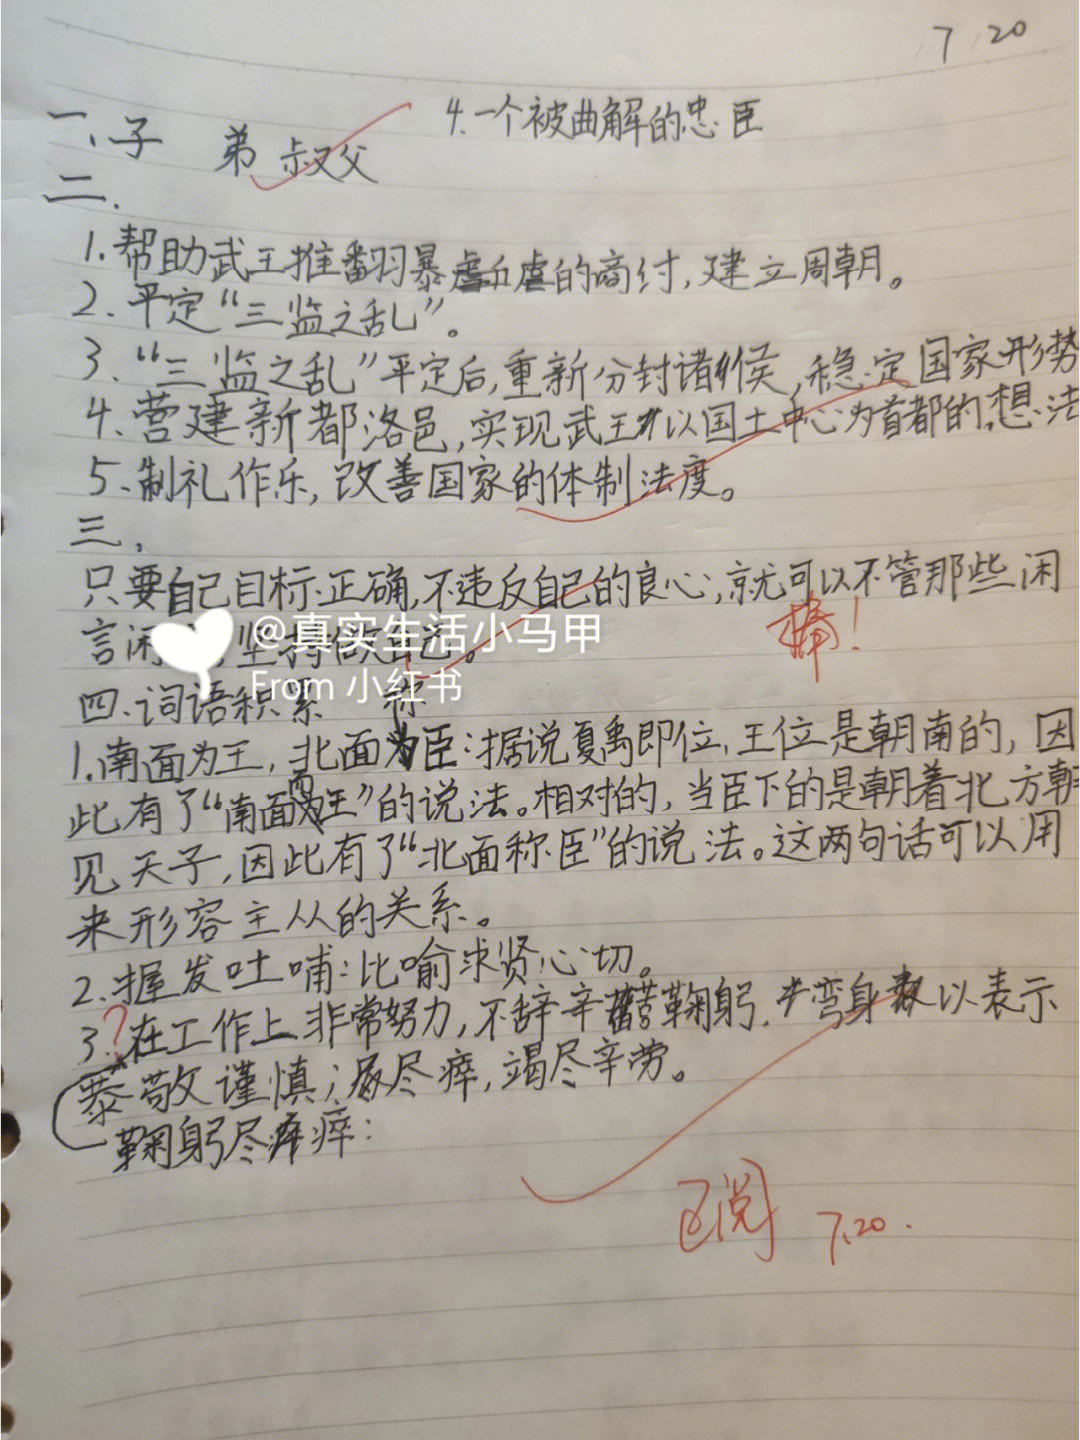 7 20
4.一个被曲解的忠臣
一、子 弟 叔父
二.
1.帮助武王推翻暴虐的商纣,建立周朝。
2.平定“三监之乱”。
3.“三监之乱”平定后,重新分封诸侯,稳定国家形势
4、营建新都洛邑,实现武王以国土中心为首都的想法
5、制礼作乐,改善国家的体制法度。
三.
只要自己目标正确,不违反自己的良心,就可以不管那些闲
言闲 坚持做自己。
棒!
@真实生活小马甲
From 小红书
四、词语积累
1.南面为王,北面称臣:据说夏禹即位,王位是朝南的,因
此有了“南面而王”的说法。相对的,当臣下的是朝着北方朝
见天子,因此有了“北面称臣”的说法。这两句话可以用
来形容主从的关系。
2.握发吐哺:比喻求贤心切。
3.?在工作上非常努力,不辞辛苦鞠躬.弯身以表示
恭敬谨慎;尽瘁,竭尽辛劳。
鞠躬尽瘁:
已阅 7.20.